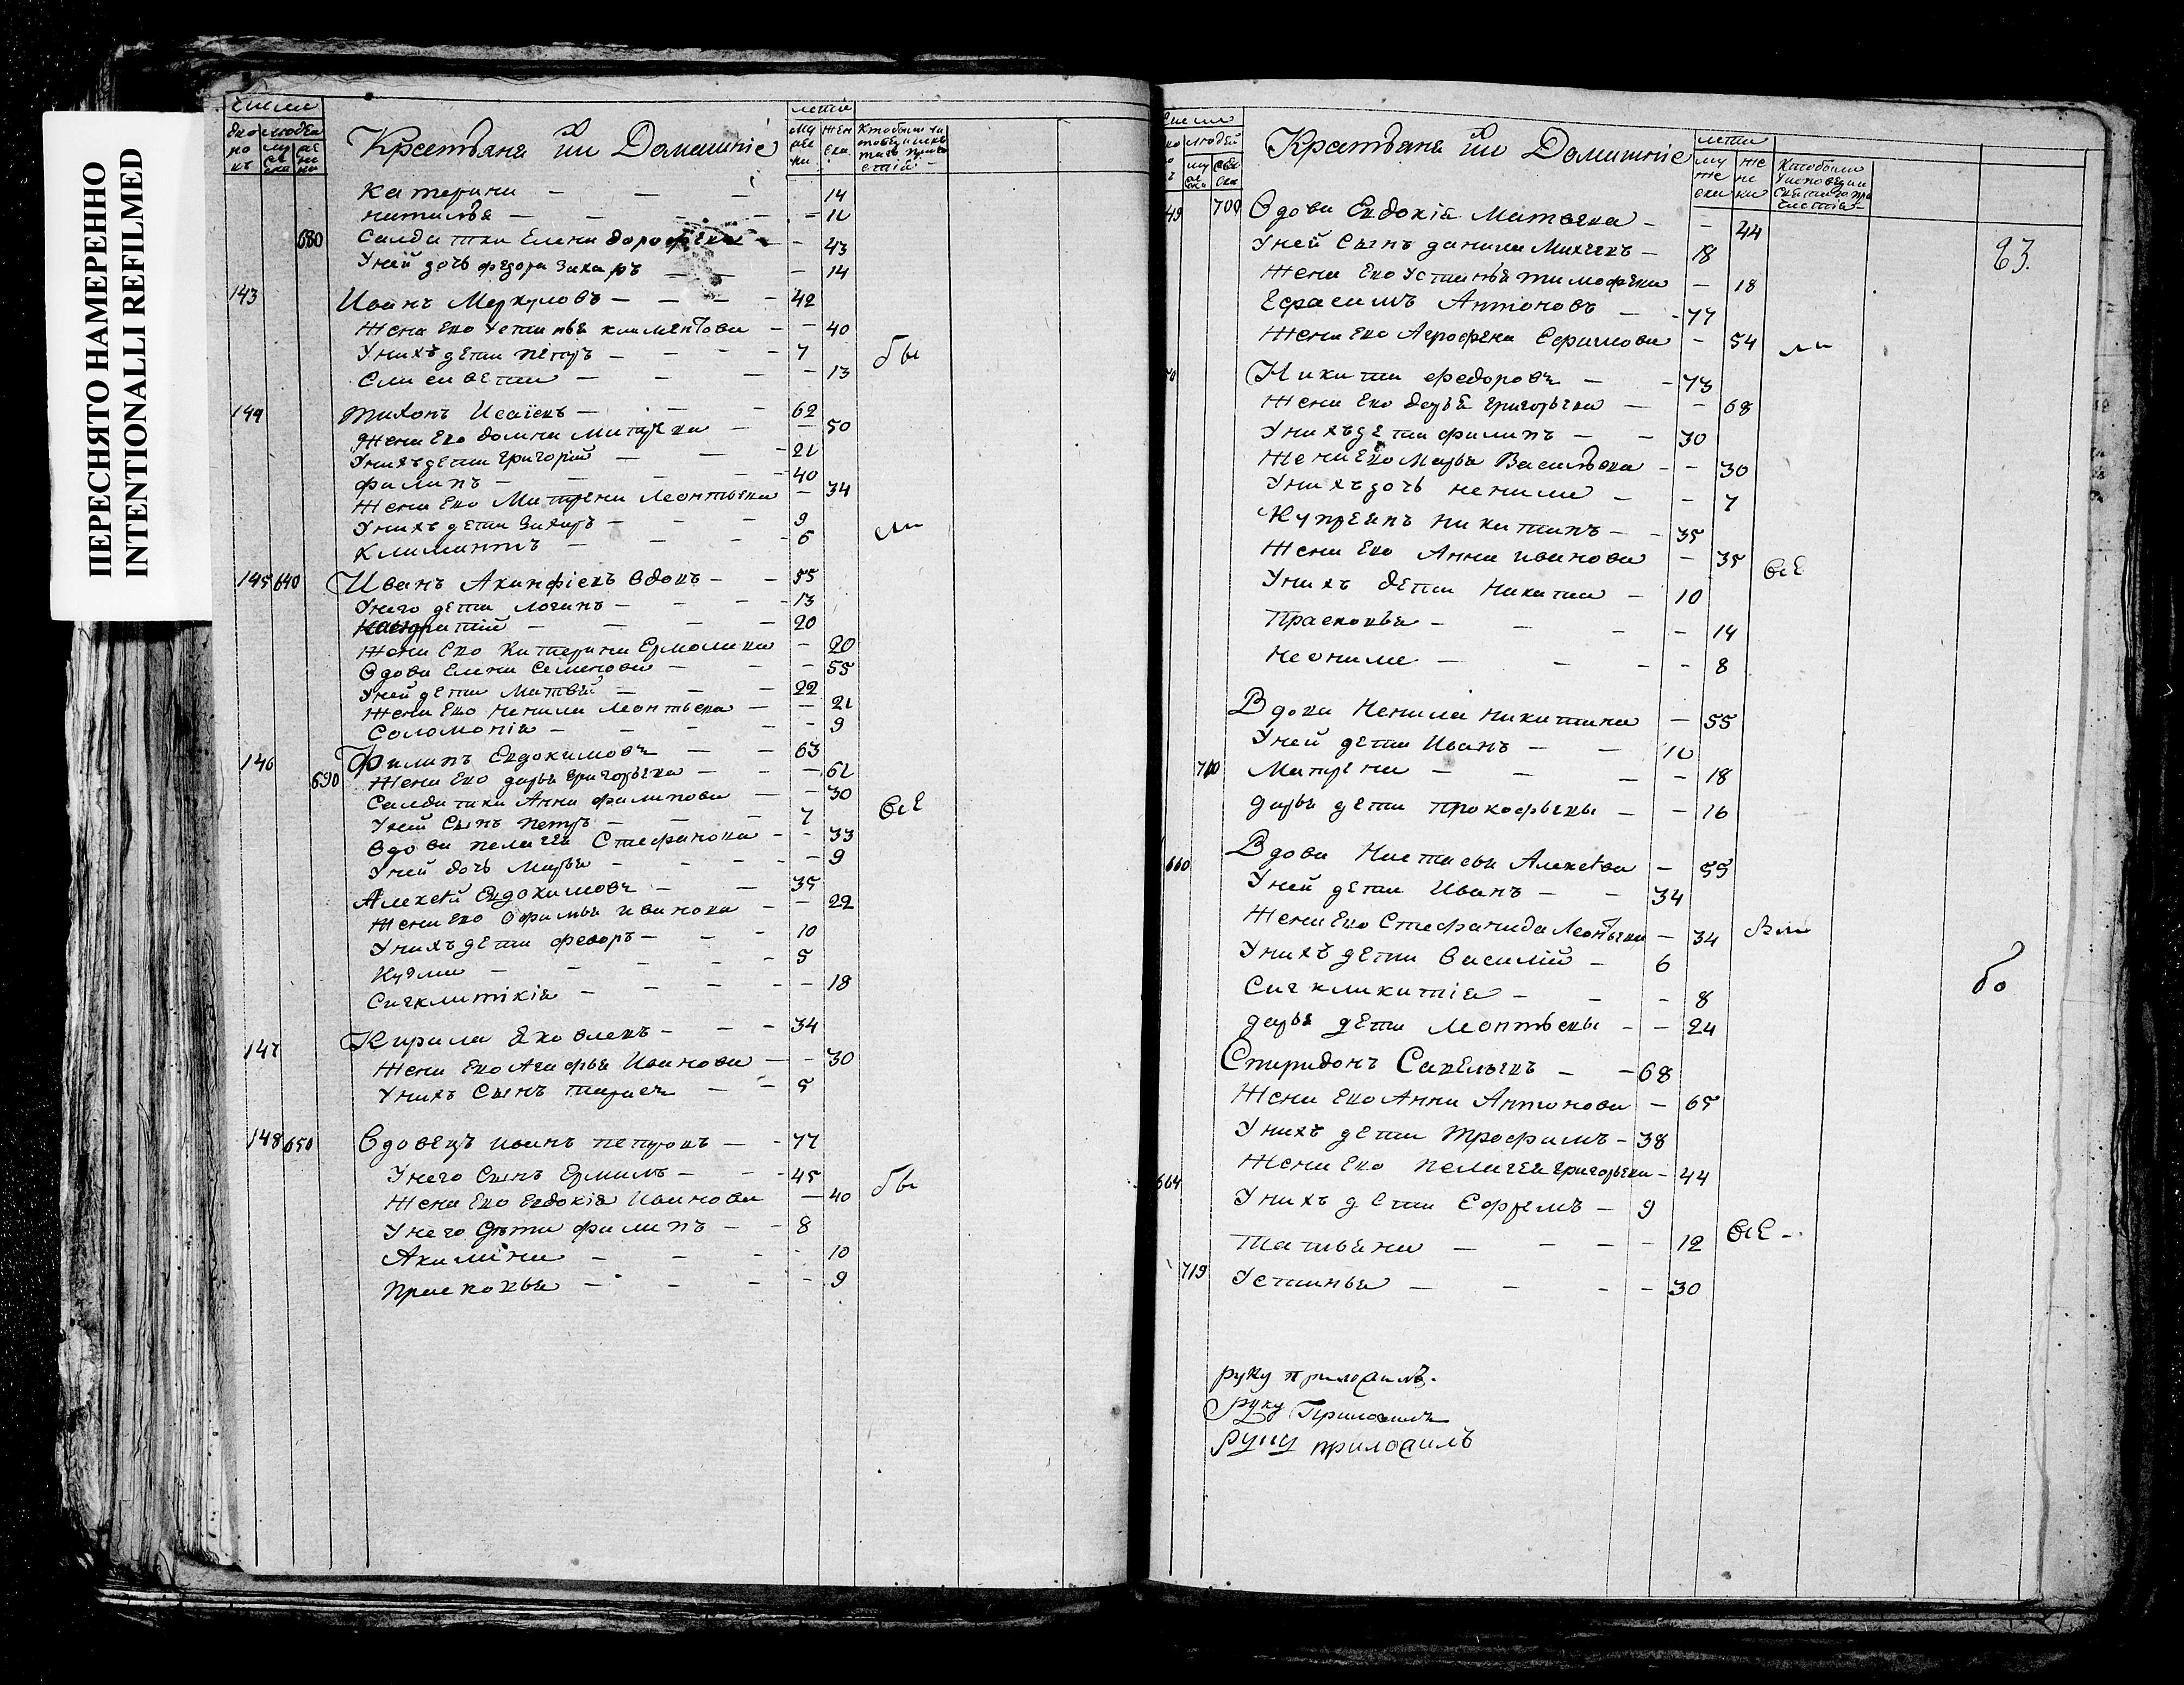 ПЕРЕСНЯТО НАМЕРЕННО
INTENTIONALLI REFILMED
Крестьяня ии Домашніе
Катерина — — — 14
наталья — — — —
680 Салдатка Елена дорофеева — — 43
Уней дочь федора Захаръ — — — 14
143 Иванъ Меркуловъ — — — — 42
жена Ево Устинья климентова — — 40
Унихъ дети петръ — — — — 7 бы
Елисавета — — — — 13
144 тихонъ Исаіевъ — — — 62
жена Ево домна — — 50
Унихъ дети Григорий — — — 21
филипъ — — — — 40
жена Ево Матрена Леонтьева — 34
Унихъ дети Захаръ — — — 9 ли
Климантъ — — — — 6
145 640 Иванъ Акинфіевъ вдовъ — — 55
Унего дети логинъ — — — — 13
— — — 20
жена Ево Катерина Ермолаева — 20
Вдова Елена Семенова — — — 55
Уней дети Матвей — — — 22
жена Ево ненила Леонтьева — — 21
Соломонія — — — — — 9
146 Филипъ Евдокимовъ — — 63
690 жена Ево дарья григорьева — — — 61
Салдатка Анна филипова — — 30
Уней Сынъ петръ — — — 7 всѣ
Вдова пелагея Стефанова — — 33
Уней дочь Марья — — — — — 9
Алексѣй Евдокимовъ — — 35
жена Ево Офимья иванова — — 22
Унихъ дети федоръ — — — 10
Кузма — — — — — 5
Сигклитікія — — — — — 18
147 Кирила Яковлевъ — — — 34
жена Ево Агафья Иванова — — 30
Унихъ Сынъ тарасъ — — 5
148 650 Вдовецъ иванъ петровъ — — 77
Унего Сынъ Ермилъ — — — 45
жена Ево Евдокія Иванова — 40 бы
Унего дѣти филипъ — — 8
Акилина — — — — 10
прасковья — — — — 9
Крестьяня ии Домашніе
83.
49 700 Вдова Евдокія Матвеева — — 44
Уней Сынъ данила Михеевъ — 18
жена Ево Устинья тимофеева — 18
Еврасимъ Антоновъ — — 77
жена Ево Агрофена Ефимова — 54 ли
50 Никита федоровъ — — 73
жена Ево дарья григорьева — — 68
Унихъ дети филипъ — — 30
жена Ево Марья Васильева — — 30
Унихъ дочь ненила — — 7
Купреянъ никитинъ — — 35
жена Ево Анна иванова — 35 всѣ
Унихъ дети никита — 10
Прасковья — — — — 14
неонила — — — — 8
Вдова ненила никитина — 55
Уней дети Иванъ — — 10
710 Матрена — — — — 18
дарья дети прокофьевы — — 16
660 Вдова Настасья Алексѣева — 55
Уней дети Иванъ — — 34
жена Ево Стефанида Леонтьева — 34
Унихъ дети Василій — 6
Сигкликитія — — — 8
дарья дети Леонтьевы — — 24
бо
Спиридонъ Савельевъ — — 68
жена Ево Анна Антонова — 65
Унихъ дети трофимъ — 38
жена Ево пелагея григорьева — 44
664 Унихъ дети Ефремъ — 9
татьяна — — — — 12 всѣ —
719 Устинья — — — — 30
руку приложилъ.
руку Приложилъ
руку приложилъ